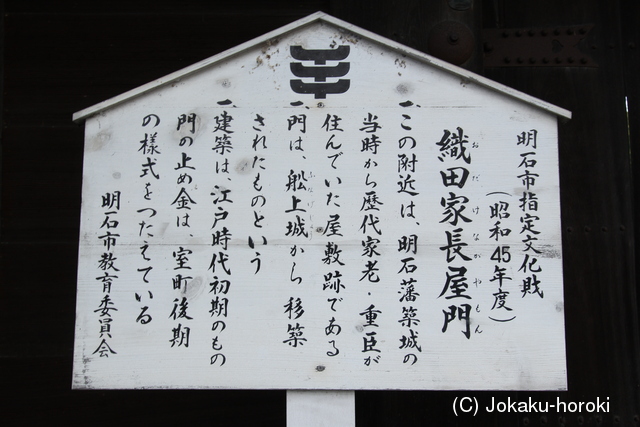 明石市指定文化財
（昭和45年度）
織田家長屋門
おだけながやもん
一、この附近は、明石藩築城の
当時から歴代家老・重臣が
住んでいた屋敷跡である
一、門は、船上城から移築
ふなげじょう
されたものという
一、建築は、江戸時代初期のもの
門の止め金は、室町後期
の様式をつたえている
明石市教育委員会
(C) Jokaku-horoki